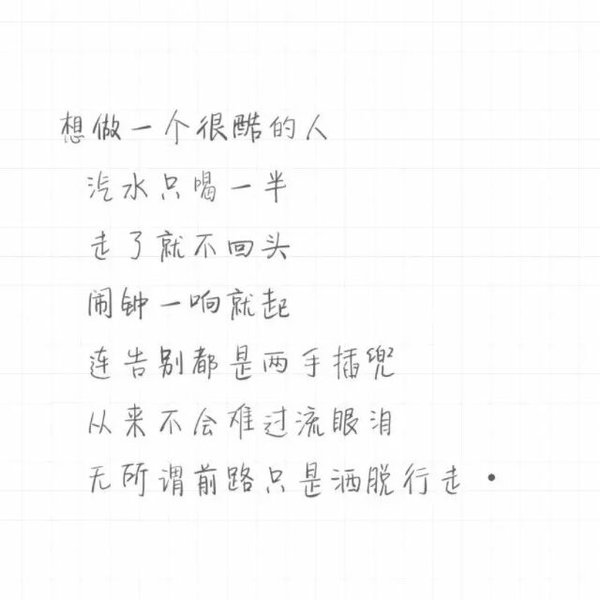 想做一个很酷的人
汽水只喝一半
走了就不回头
闹钟一响就起
连告别都是两手插兜
从来不会难过流眼泪
无所谓前路只是洒脱行走·